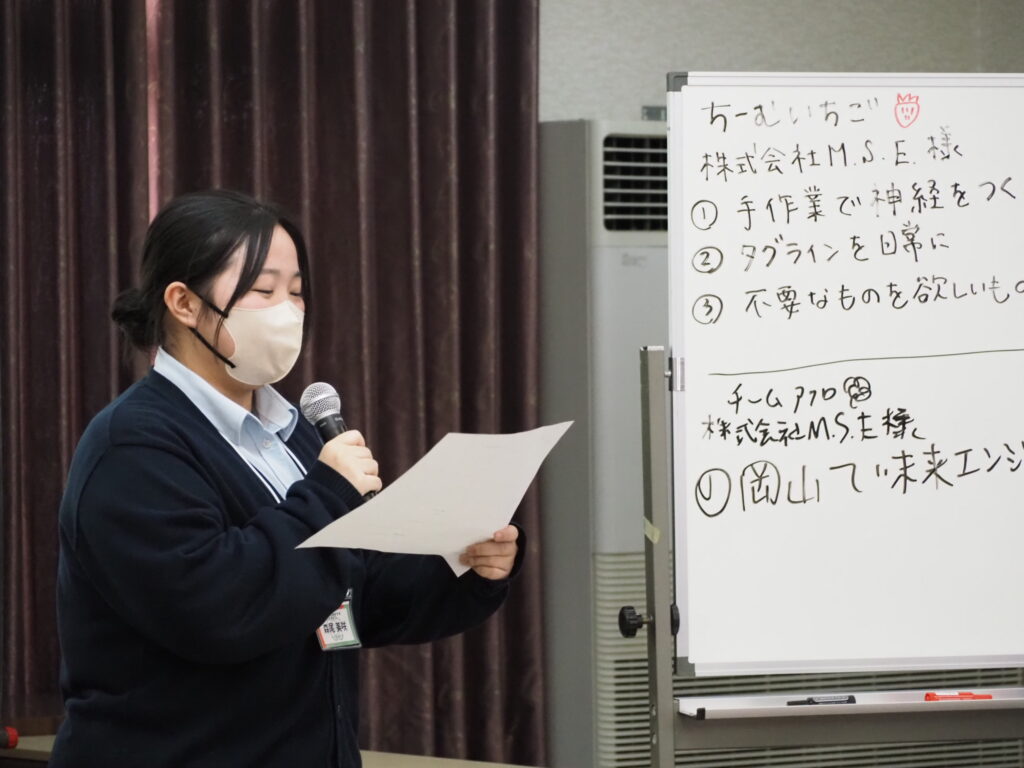 ちーむいちご
株式会社M.S.E.様
① 手作業で神経をつく
② タグラインを日常に
③ 不要なものを欲しいもの
チームアフロ
株式会社M.S.E様
① 岡山で未来エンジ
森尾 美咲